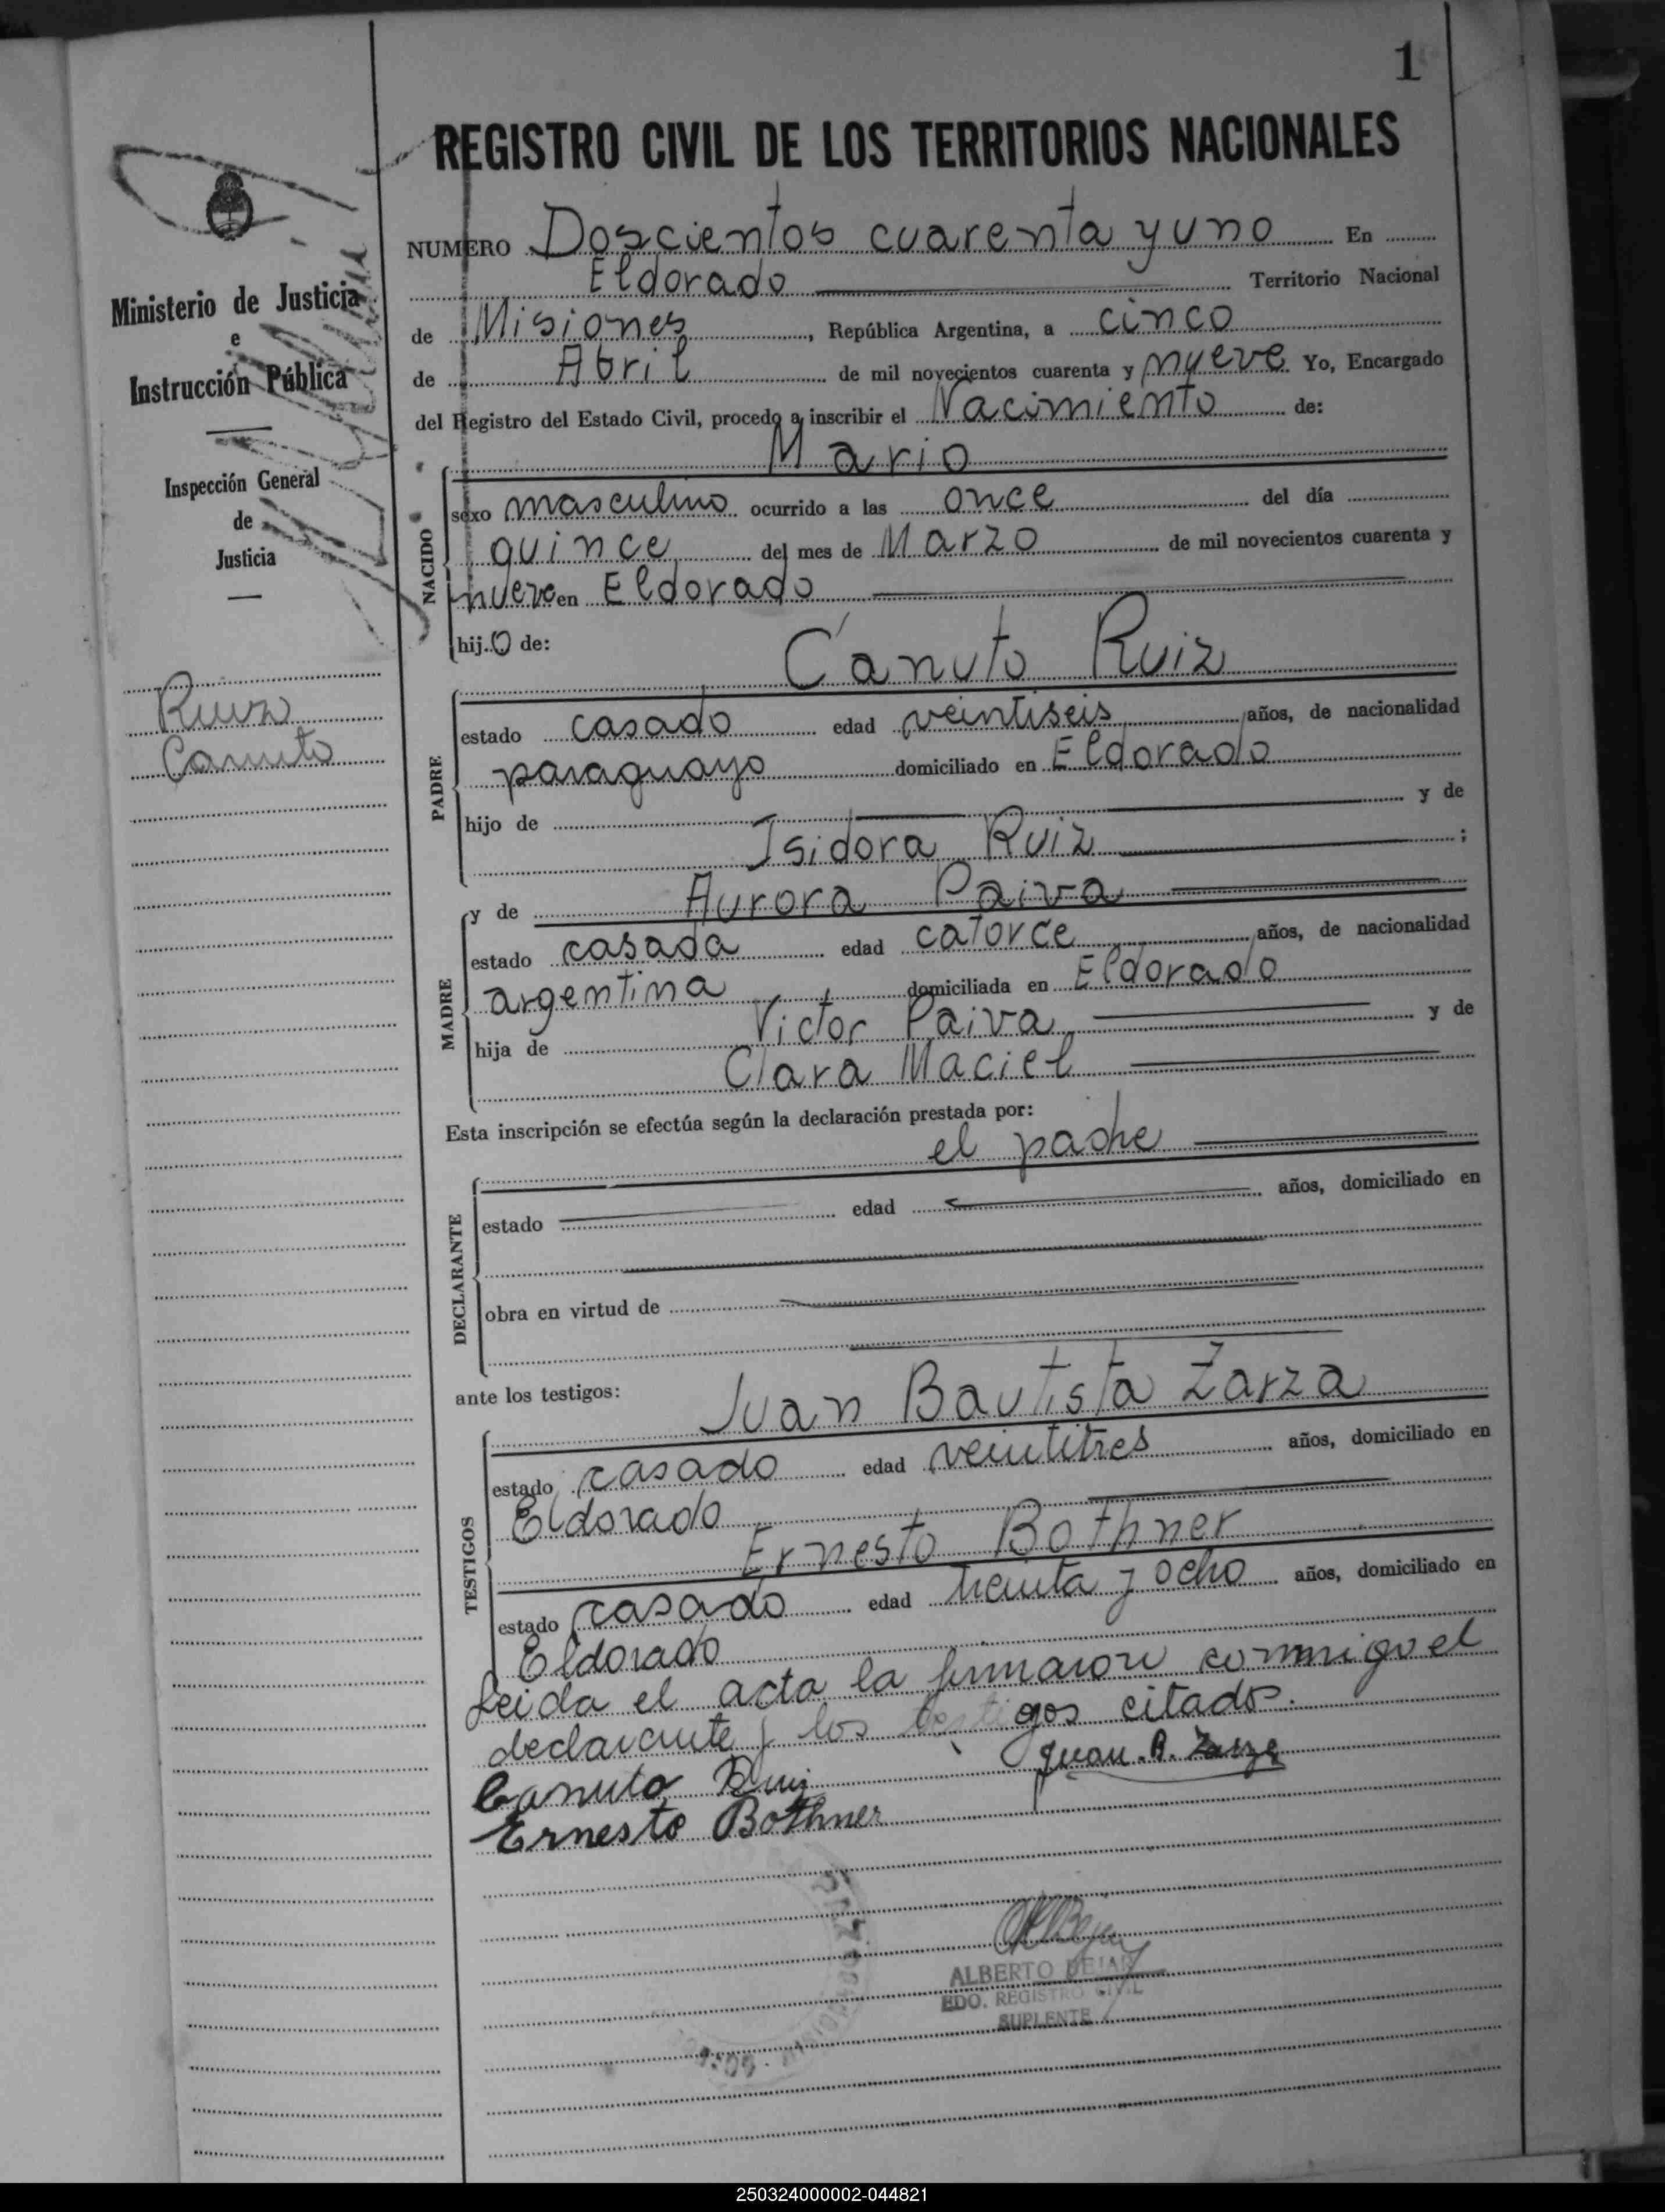 1
REGISTRO CIVIL DE LOS TERRITORIOS NACIONALES
NUMERO Doscientos cuarenta y uno En
Eldorado Territorio Nacional
de Misiones, República Argentina, a cinco
de Abril de mil novecientos cuarenta y nueve. Yo, Encargado
del Registro del Estado Civil, procedo a inscribir el Nacimiento de:
Mario
NACIDO
sexo masculino ocurrido a las once del día
quince del mes de Marzo de mil novecientos cuarenta y
nueve en Eldorado
hijo de:
Canuto Ruiz
PADRE
estado casado edad veintiseis años, de nacionalidad
paraguayo domiciliado en Eldorado
hijo de y de
Isidora Ruiz ;
y de Aurora Paiva
MADRE
estado casada edad catorce años, de nacionalidad
argentina domiciliada en Eldorado
hija de Victor Paiva y de
Clara Maciel
Esta inscripción se efectúa según la declaración prestada por:
el padre
DECLARANTE
estado edad años, domiciliado en
obra en virtud de
ante los testigos:
Juan Bautista Zarza
TESTIGOS
estado casado edad veintitres años, domiciliado en
Eldorado
Ernesto Bothner
estado casado edad treinta y ocho años, domiciliado en
Eldorado
Leida el acta la firmaron conmigo el
declarante y los testigos citados.
Canuto Ruiz Juan B. Zarza
Ernesto Bothner
ALBERTO BEJAR
EDO. REGISTRO CIVIL
SUPLENTE
Ministerio de Justicia
e
Instrucción Pública
Inspección General
de
Justicia
Ruiz
Canuto
250324000002-044821